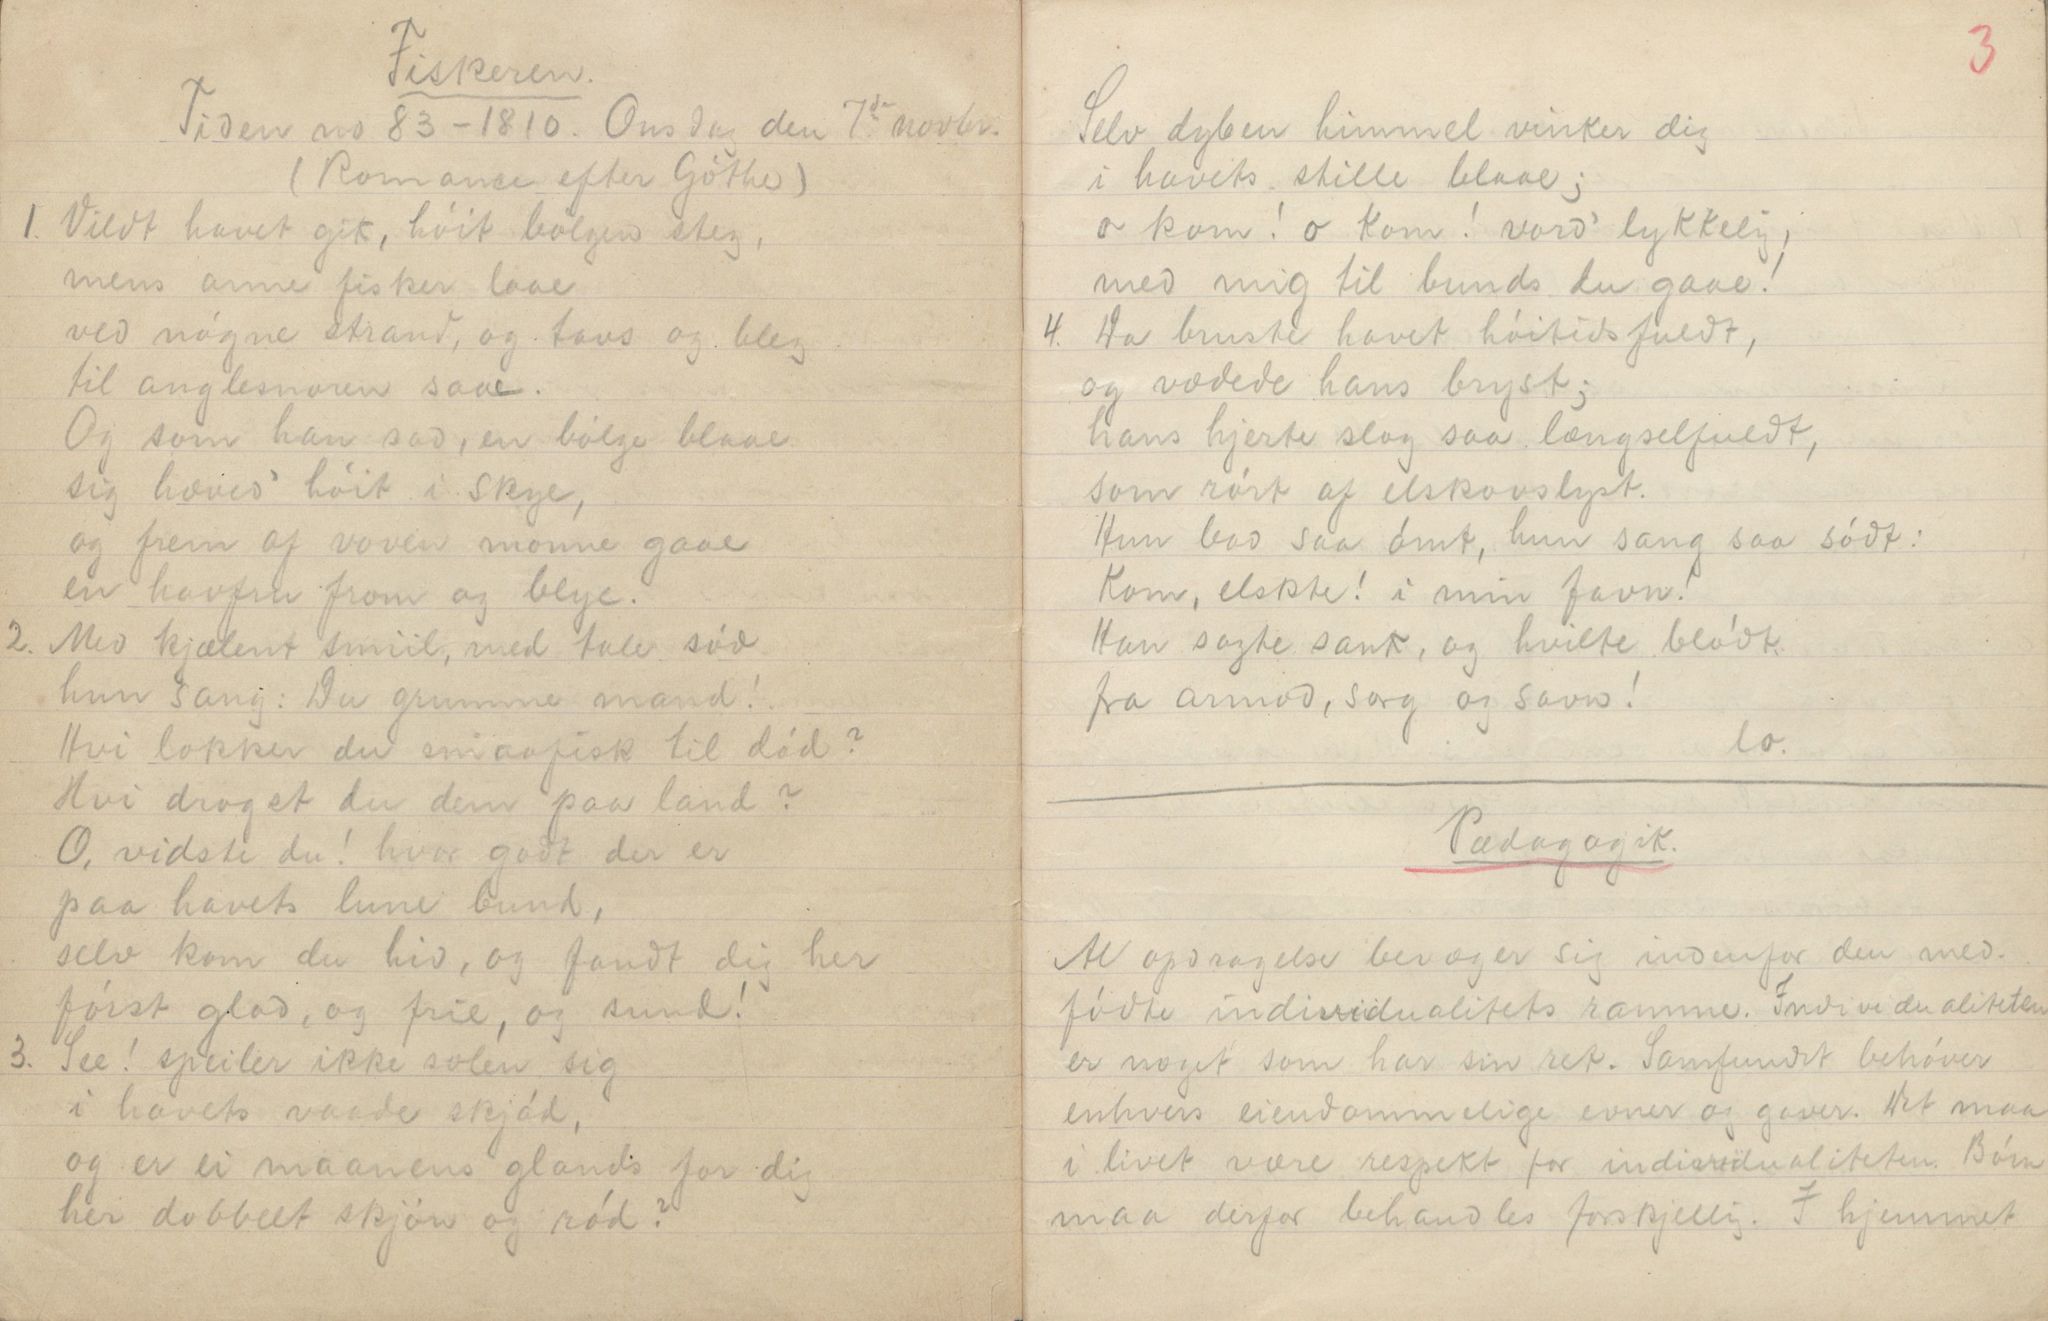 Fiskeren.
Tiden no 83-1810. Onsdag den 7de novbr.
(Romance efter Göthe)
1. Vildt havet gik, höit bölgen steg,
mens arme fisker laae
ved nögne strand, og tavs og bleg
til anglesnoren saae.
Og som han sad, en bölge blaae
sig hæved' höit i skye,
og frem af voven monne gaae
en havfru from og blye.
2. Med kjælent smiil, med tale söd
hun sang: Du grumme mand!
Hvi lokker du smaafisk til död?
Hvi droget du dem paa land?
O, vidste du! hvor godt der er
paa havets lune bund,
selv kom du hid, og fandt dig her
först glad, og frie, og sund!
3. See! speiler ikke solen sig
i havets vaade skjöd,
og er ei maanens glands for dig
her dobbelt skjön og röd?
3
Selv dyben himmel vinker dig
i havets stille blaae;
o kom! o kom! vord' lykkelig,
med mig til bunds du gaae!
4. Da bruste havet höitidsfuldt,
og vædede hans bryst;
hans hjerte slog saa længselfuldt,
som rört af elskovslyst.
Hun bad saa ömt, hun sang saa södt:
Kom, elskte! i min favn!
Han sagte sank, og hvilte blödt
fra armod, sorg og savn!
lo.
Pædagogik.
Al opdragelse bevæger sig indenfor den med-
födte individualitets ramme. Individualiteten
er noget som har sin ret. Samfundet behöver
enhvers eiendommelige evner og gaver. Det maa
i livet være respekt for individualiteten. Börn
maa derfor behandles forskjellig. I hjemmet